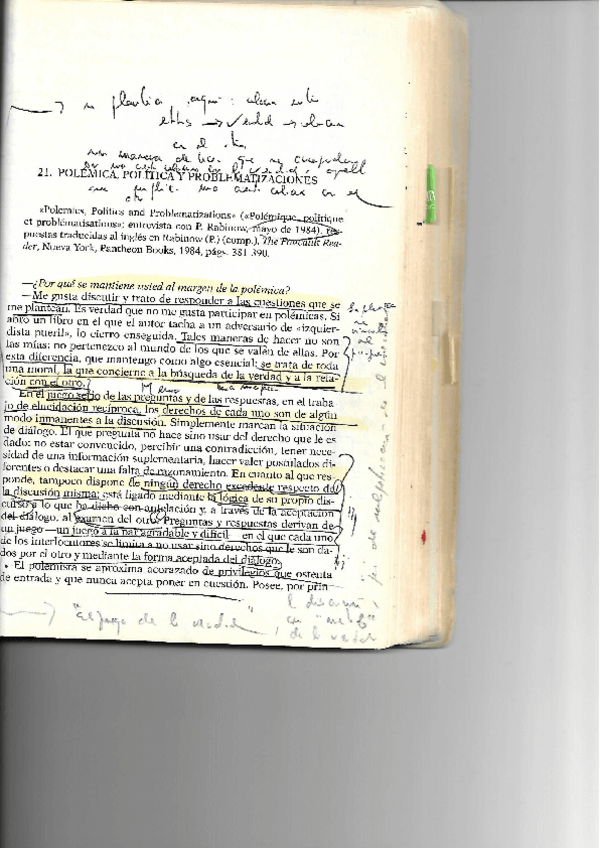 en el
21. POLÉMICA, POLÍTICA Y PROBLEMATIZACIONES
«Polemics, Politics and Problematizations» («Polémique, politique
et problématisations»; entrevista con P. Rabinow, mayo de 1984), res-
puestas traducidas al inglés en Rabinow (P.) (comp.), The Foucault Rea-
der, Nueva York, Pantheon Books, 1984, págs. 381-390.
—¿Por qué se mantiene usted al margen de la polémica?
—Me gusta discutir y trato de responder a las cuestiones que se
me plantean. Es verdad que no me gusta participar en polémicas. Si
abro un libro en el que el autor tacha a un adversario de «izquier-
dista pueril», lo cierro enseguida. Tales maneras de hacer no son
las mías; no pertenezco al mundo de los que se valen de ellas. Por
esta diferencia, que mantengo como algo esencial: se trata de toda
una moral, la que concierne a la búsqueda de la verdad y a la rela-
ción con el otro.
En el juego serio de las preguntas y de las respuestas, en el traba-
jo de elucidación recíproca, los derechos de cada uno son de algún
modo inmanentes a la discusión. Simplemente marcan la situación
de diálogo. El que pregunta no hace sino usar del derecho que le es
dado: no estar convencido, percibir una contradicción, tener nece-
sidad de una información suplementaria, hacer valer postulados di-
ferentes o destacar una falta de razonamiento. En cuanto al que res-
ponde, tampoco dispone de ningún derecho excedente respecto de
la discusión misma; está ligado mediante la lógica de su propio dis-
curso a lo que ha dicho con antelación y, a través de la aceptación
del diálogo, al examen del otro. Preguntas y respuestas derivan de
un juego —un juego a la par agradable y difícil— en el que cada uno
de los interlocutores se limita a no usar sino derechos que le son da-
dos por el otro y mediante la forma aceptada del diálogo.
El polemista se aproxima acorazado de privilegios que ostenta
de entrada y que nunca acepta poner en cuestión. Posee, por prin-
"El juego de la verdad"